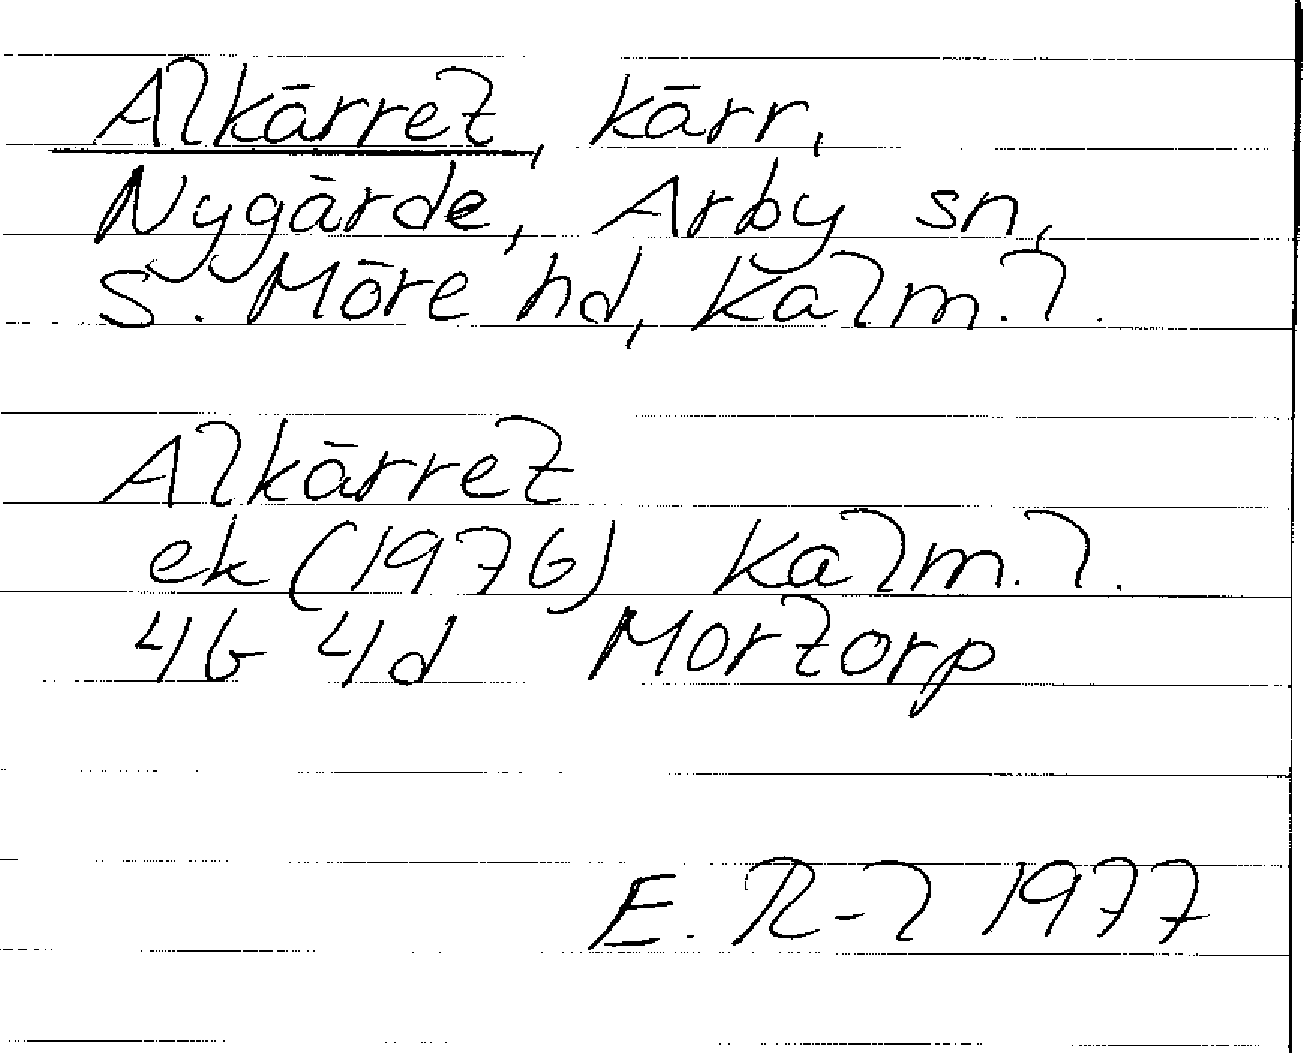 Alkärret, kärr,
Nygärde, Arby sn,
S. Möre hd, Kalm. l.
Alkärret
ek (1976) Kalm. l.
4G 4d Mortorp
E. R-l 1977